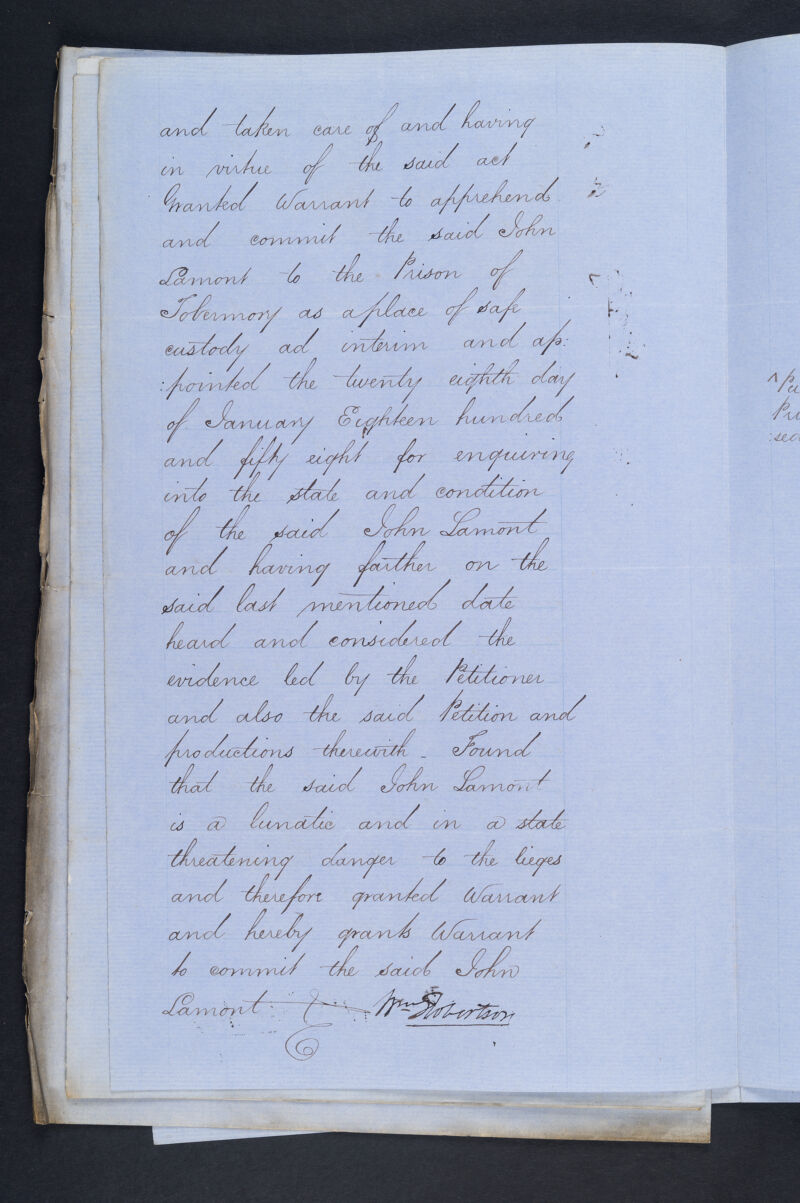 and taken care of and having
in virtue of the said act
Granted Warrant to apprehend
and commit the said John
Lamont to the Prison of
Tobermory as a place of safe
custody ad interim and ap:
:pointed the twenty eighth day
of January Eighteen hundred
and fifty eight for enquiring
into the state and condition
of the said John Lamont
and having farther on the
said last mentioned date
heard and considered the
evidence led by the Petitioner
and also the said Petition and
productions therewith - Found
that the said John Lamont
is a lunatic and in a state
threatening danger to the lieges
and therefore granted Warrant
and hereby grants Warrant
to commit the said John
Lamont Wm Robertson